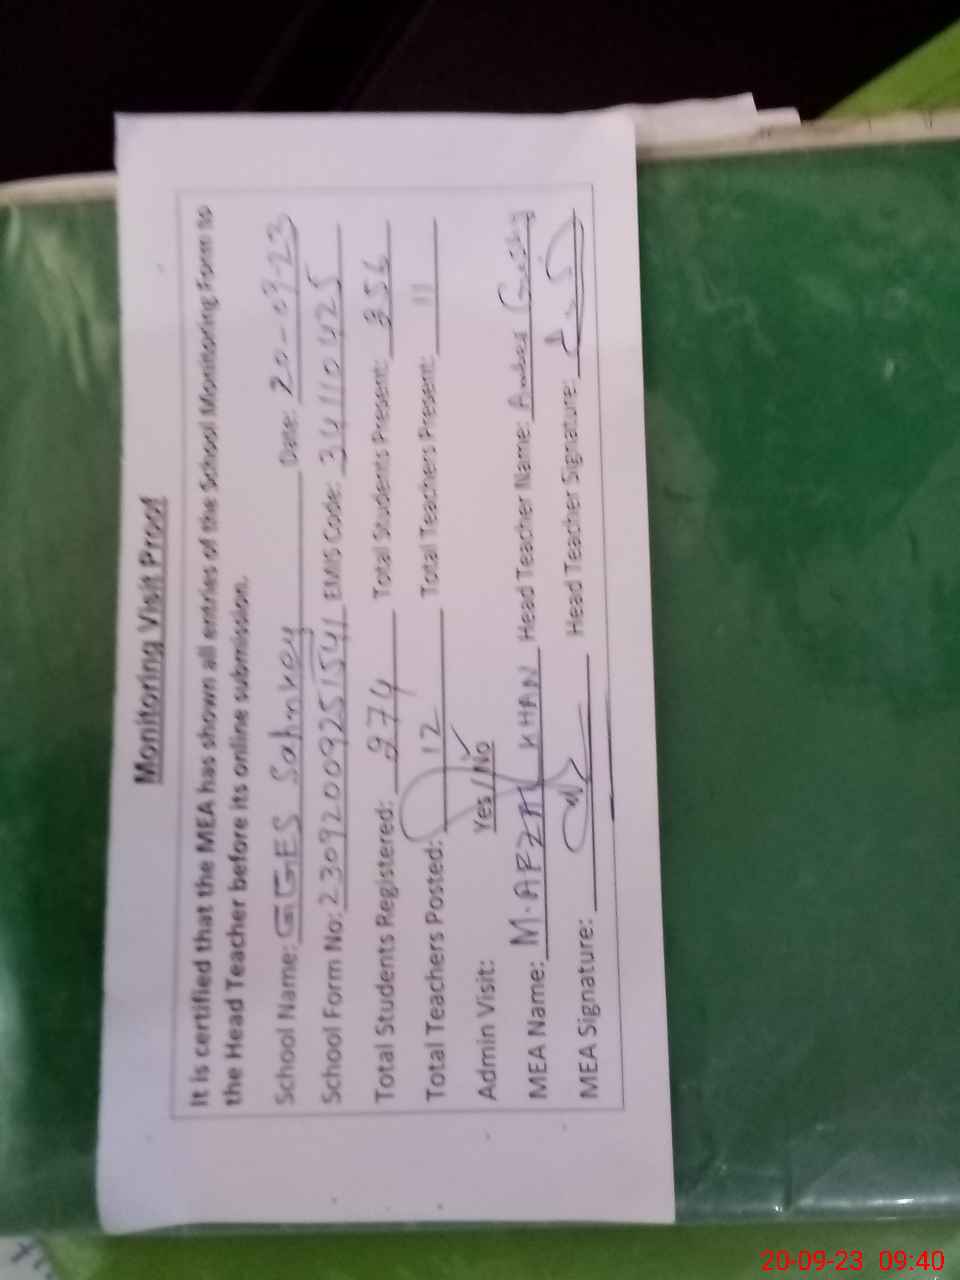 Monitoring Visit Proof
It is certified that the MEA has shown all entries of the School Monitoring Form to
the Head Teacher before its online submission.
School Name: GGES Sahnkay Date: 20-09-23
School Form No: 23092009251541 EMIS Code: 34110425
Total Students Registered: 974 Total Students Present: 856
Total Teachers Posted: 12 Total Teachers Present: 11
Admin Visit: Yes / No
MEA Name: M. AFZAL KHAN Head Teacher Name: Amber
MEA Signature: Head Teacher Signature:
20-09-23 09:40